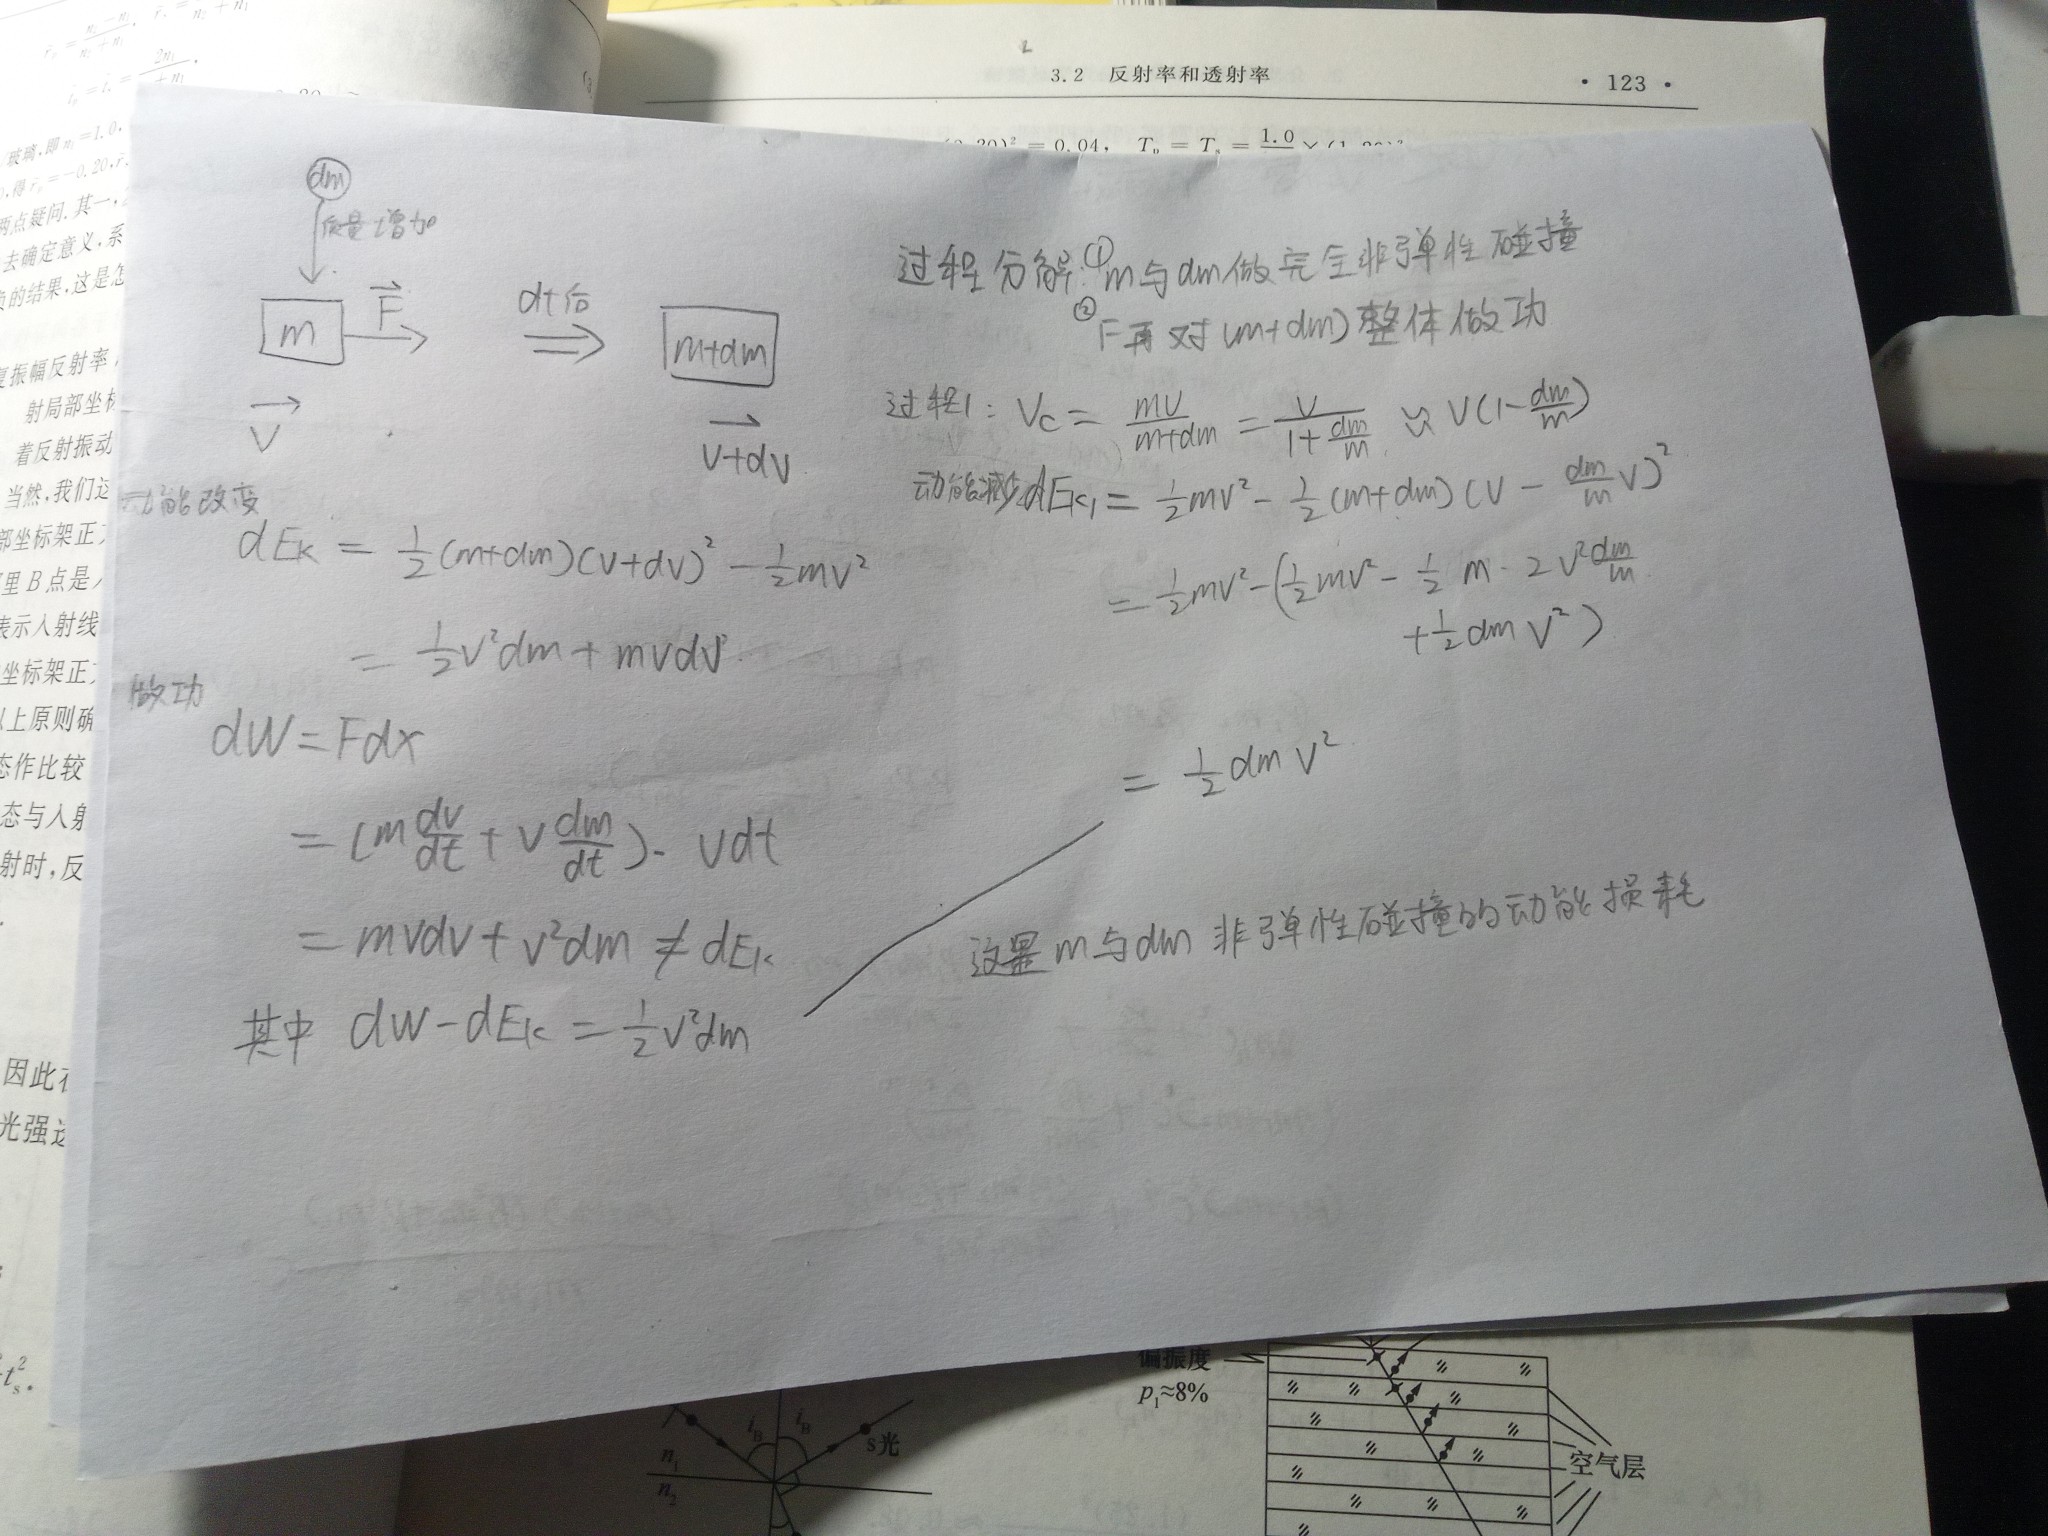 3.2 反射率和透射率
· 123 ·
= 0.04,
玻璃,即 n₁=1.0,
两点疑问.其一,
去确定意义,系
负的结果,这是怎
复振幅反射率,
射局部坐标
着反射振动
当然,我们这
部坐标架正
里 B 点是
表示入射线
坐标架正
以上原则确
态作比较
态与入射
射时,反
因此在
光强
dm
质量增加
m
F
dt后
⇒
m+dm
V
V+dV
动能改变
dEk = ½(m+dm)(V+dV)² - ½mV²
= ½V²dm + mVdV
做功
dW = Fdx
= (m dv/dt + V dm/dt) · Vdt
= mVdV + V²dm ≠ dEk
其中 dW - dEk = ½V²dm
过程分解:①m与dm做完全非弹性碰撞
②F再对(m+dm)整体做功
过程1: Vc = mV/(m+dm) = V/(1+dm/m) ≈ V(1-dm/m)
动能减少dEk₁ = ½mV² - ½(m+dm)(V - dm/m V)²
= ½mV² - (½mV² - ½m·2V² dm/m
+ ½dmV²)
= ½dmV²
这是m与dm非弹性碰撞的动能损耗
偏振度
p₁≈8%
i_B
i_B
s光
n₁
n₂
空气层